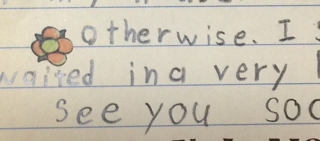 otherwise. I
waited in a very
see you soo